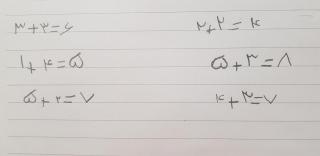 ۳+۳=۶ ۲+۲=۴
۱+۴=۵ ۵+۳=۸
۵+۲=۷ ۴+۳=۷